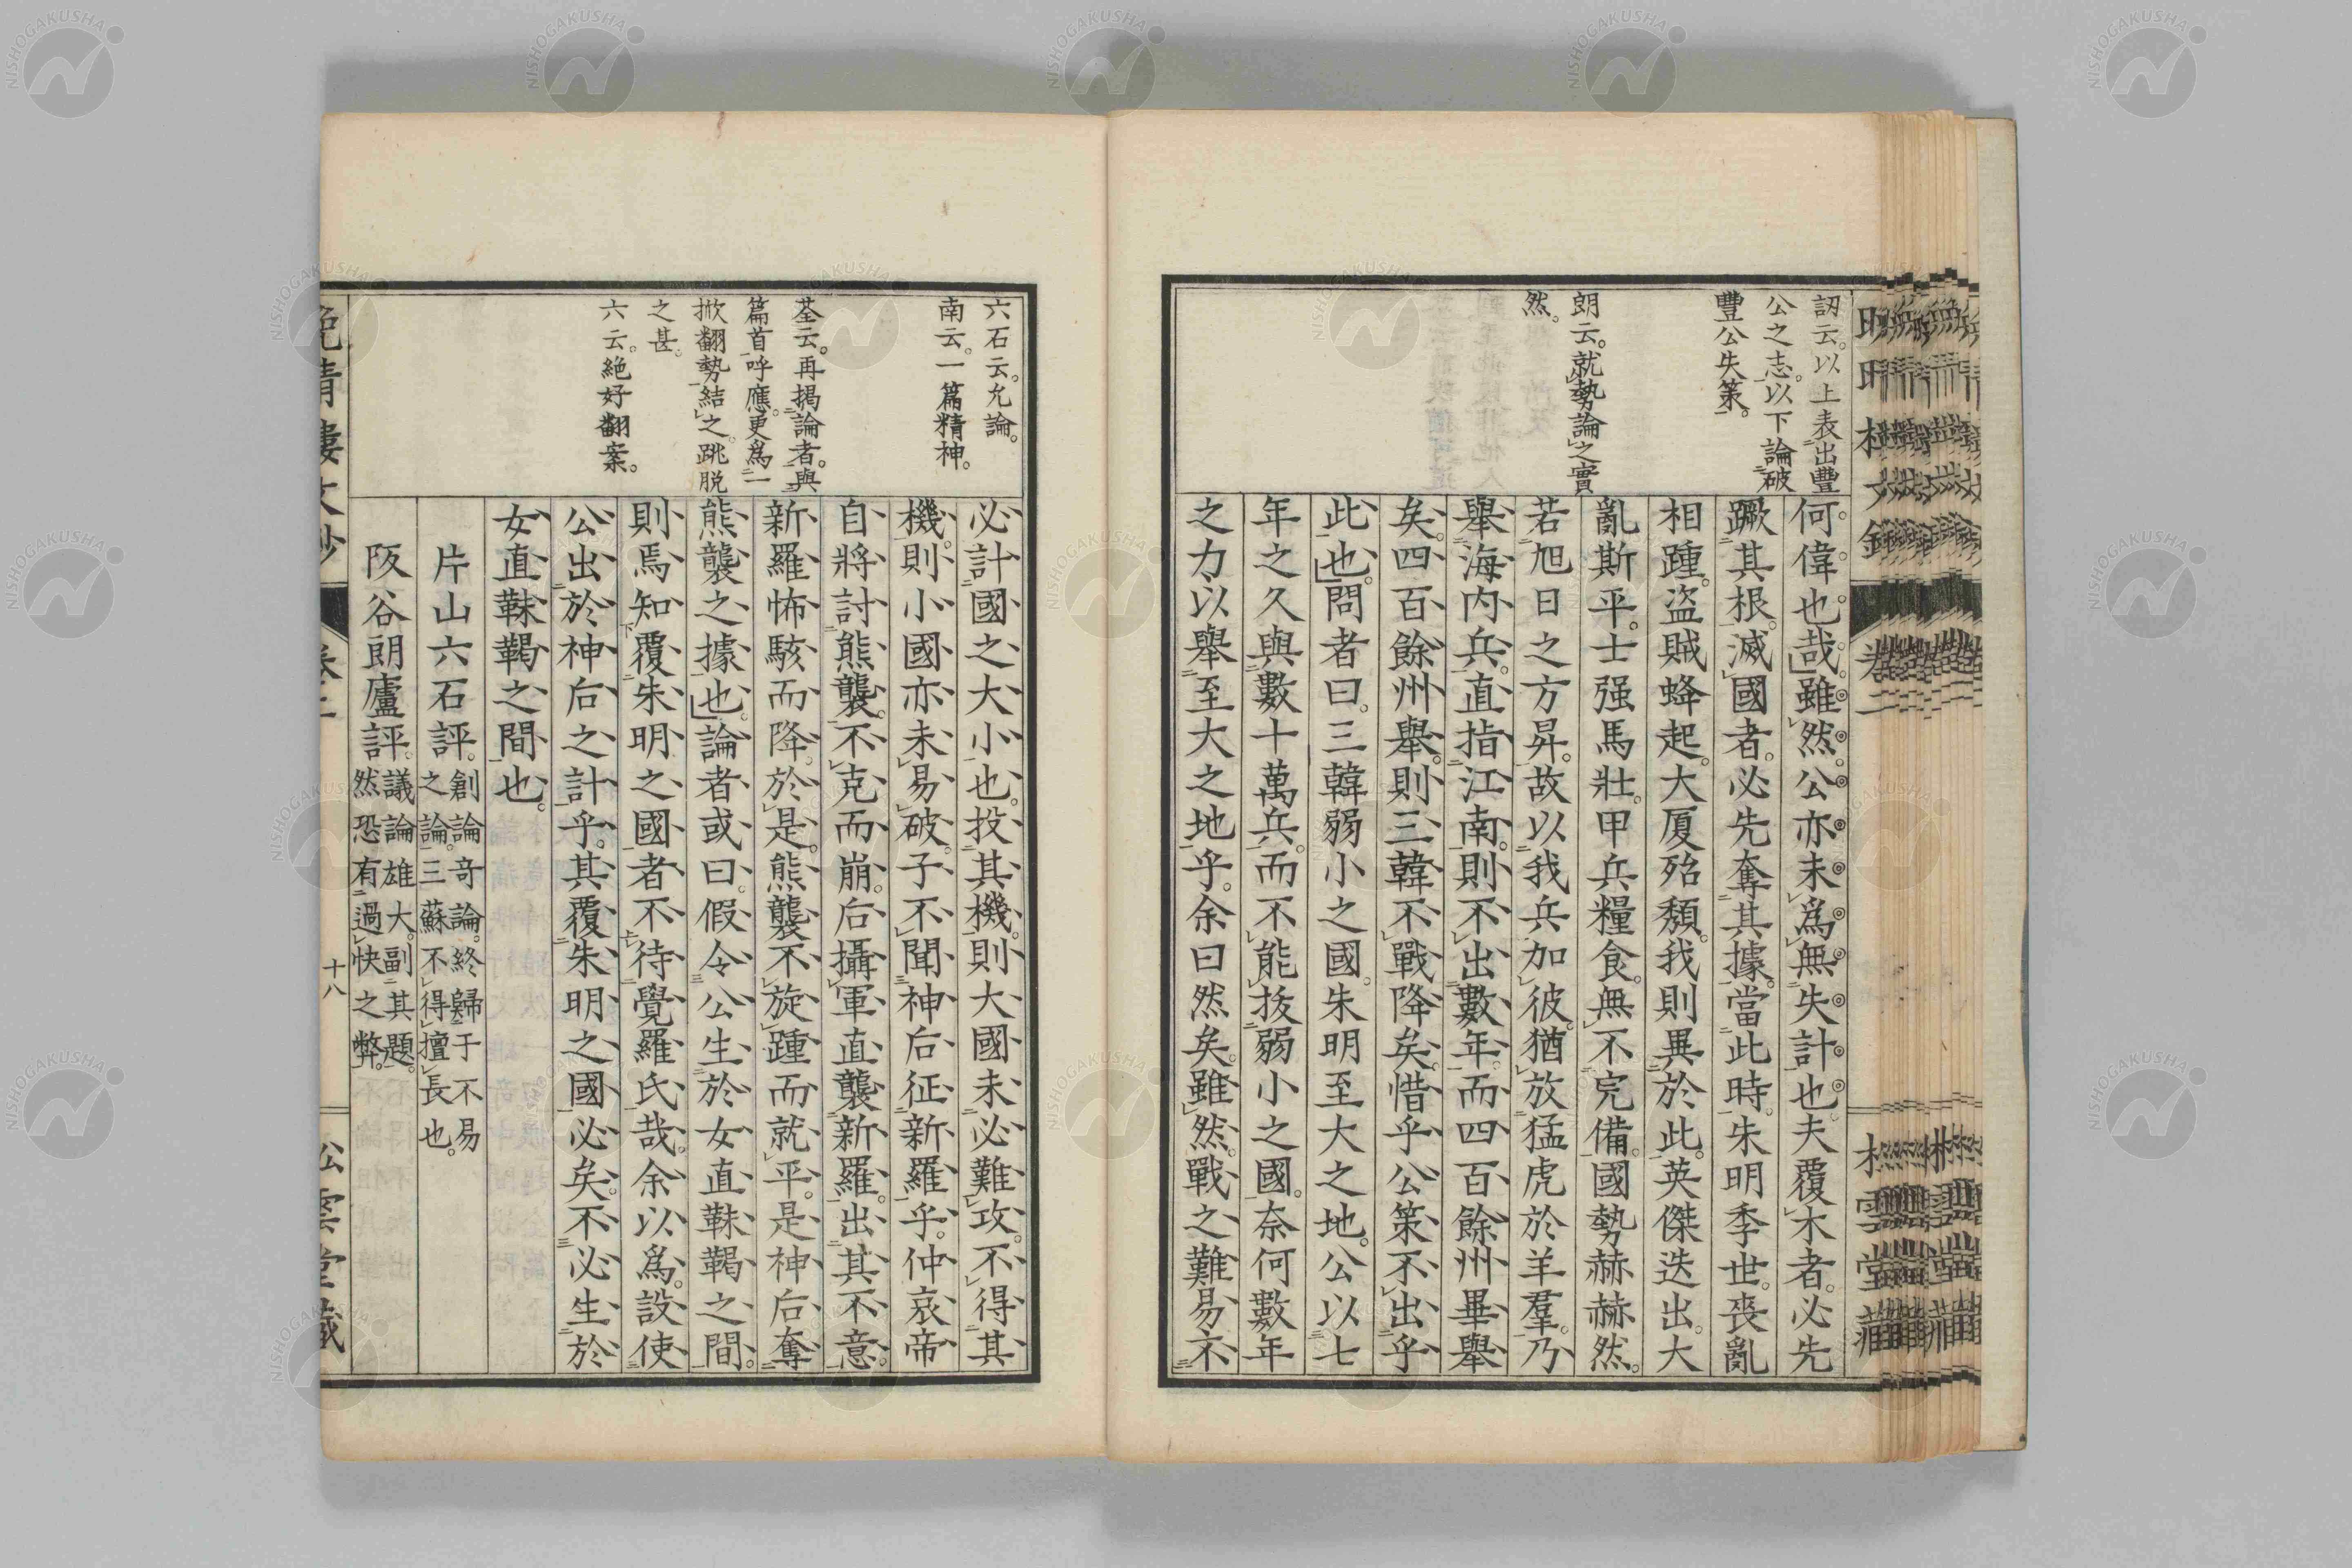 訒云。以上表出豐
公之志。以下論破
豐公失策。
朗云。就勢論之實
然。
何偉也哉。雖然。公亦未爲無失計也。夫覆木者。必先
蹶其根。滅國者。必先奪其據。當此時。朱明季世。喪亂
相踵。盜賊蜂起。大厦殆頽。我則異於此。英傑迭出。大
亂斯平。士强馬壯。甲兵糧食。無不完備。國勢赫赫然。
若旭日之方昇。故以我兵加彼。猶放猛虎於羊羣。乃
舉海内兵。直指江南。則不出數年。而四百餘州畢舉
矣。四百餘州舉。則三韓不戰降矣。惜乎公策不出乎
此也。問者曰。三韓弱小之國。朱明至大之地。公以七
年之久。與數十萬兵。而不能拔弱小之國。奈何數年
之力。以舉至大之地乎。余曰然矣。雖然。戰之難易。不
六石云。允論。
南云。一篇精神。
荃云。再揭論者。與
篇首呼應。更爲一
掀翻勢結之。跳脱
之甚。
六云。絶好翻案。
必計國之大小也。投其機。則大國未必難攻。不得其
機。則小國亦未易破。子不聞神后征新羅乎。仲哀帝
自將討熊襲。不克而崩。后攝軍直襲新羅。出其不意。
新羅怖駭而降。於是。熊襲不旋踵而就平。是神后奪
熊襲之據也。論者或曰。假令公生於女直靺鞨之間。
則焉知覆朱明之國者。不待覺羅氏哉。余以爲。設使
公出於神后之計乎。其覆朱明之國必矣。不必生於
女直靺鞨之間也。
片山六石評。創論奇論。終歸于不易
之論。三蘇不得擅長也。
阪谷朗廬評。議論雄大。副其題。
然恐有過快之弊。
晩晴樓文鈔
卷二
十八
松雲堂藏